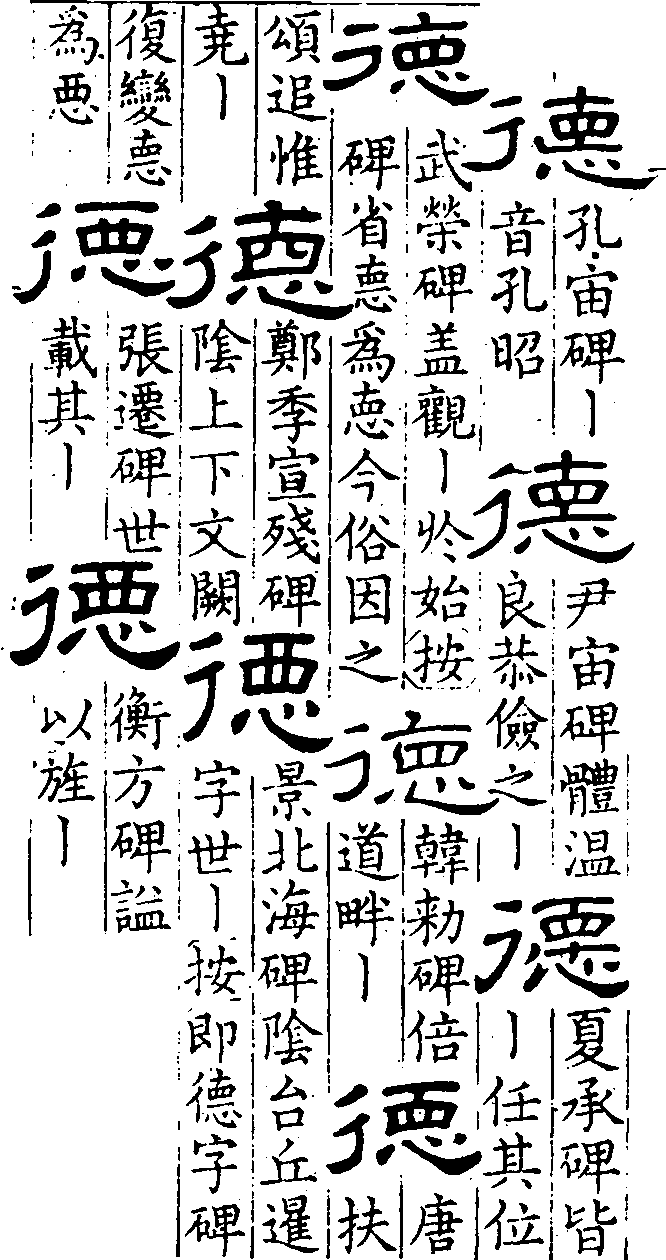 德
孔宙碑丨
音孔昭
德
尹宙碑體温
良恭儉之丨
德
夏承碑皆
丨任其位
德
武榮碑盖觀丨於始按
碑省悳為恴今俗因之
德
韓勑碑倍
道畔丨
德
唐
扶
頌追惟
尭丨
德
鄭季宣殘碑
陰上下文闕
德
景北海碑陰台丘暹
字世丨按即德字碑
復變悳
為恴
德
張遷碑世
載其丨
德
衡方碑謚
以旌丨